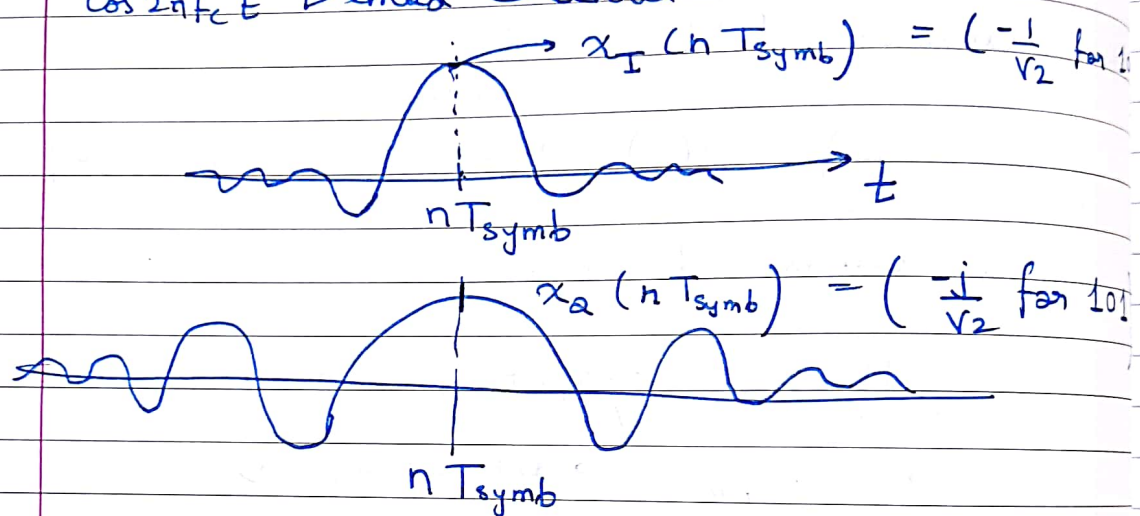 cos 2πfc t
x_I (n Tsymb) = (-1/√2 for 1
t
n Tsymb
x_Q (n Tsymb) = (-j/√2 for 101
n Tsymb